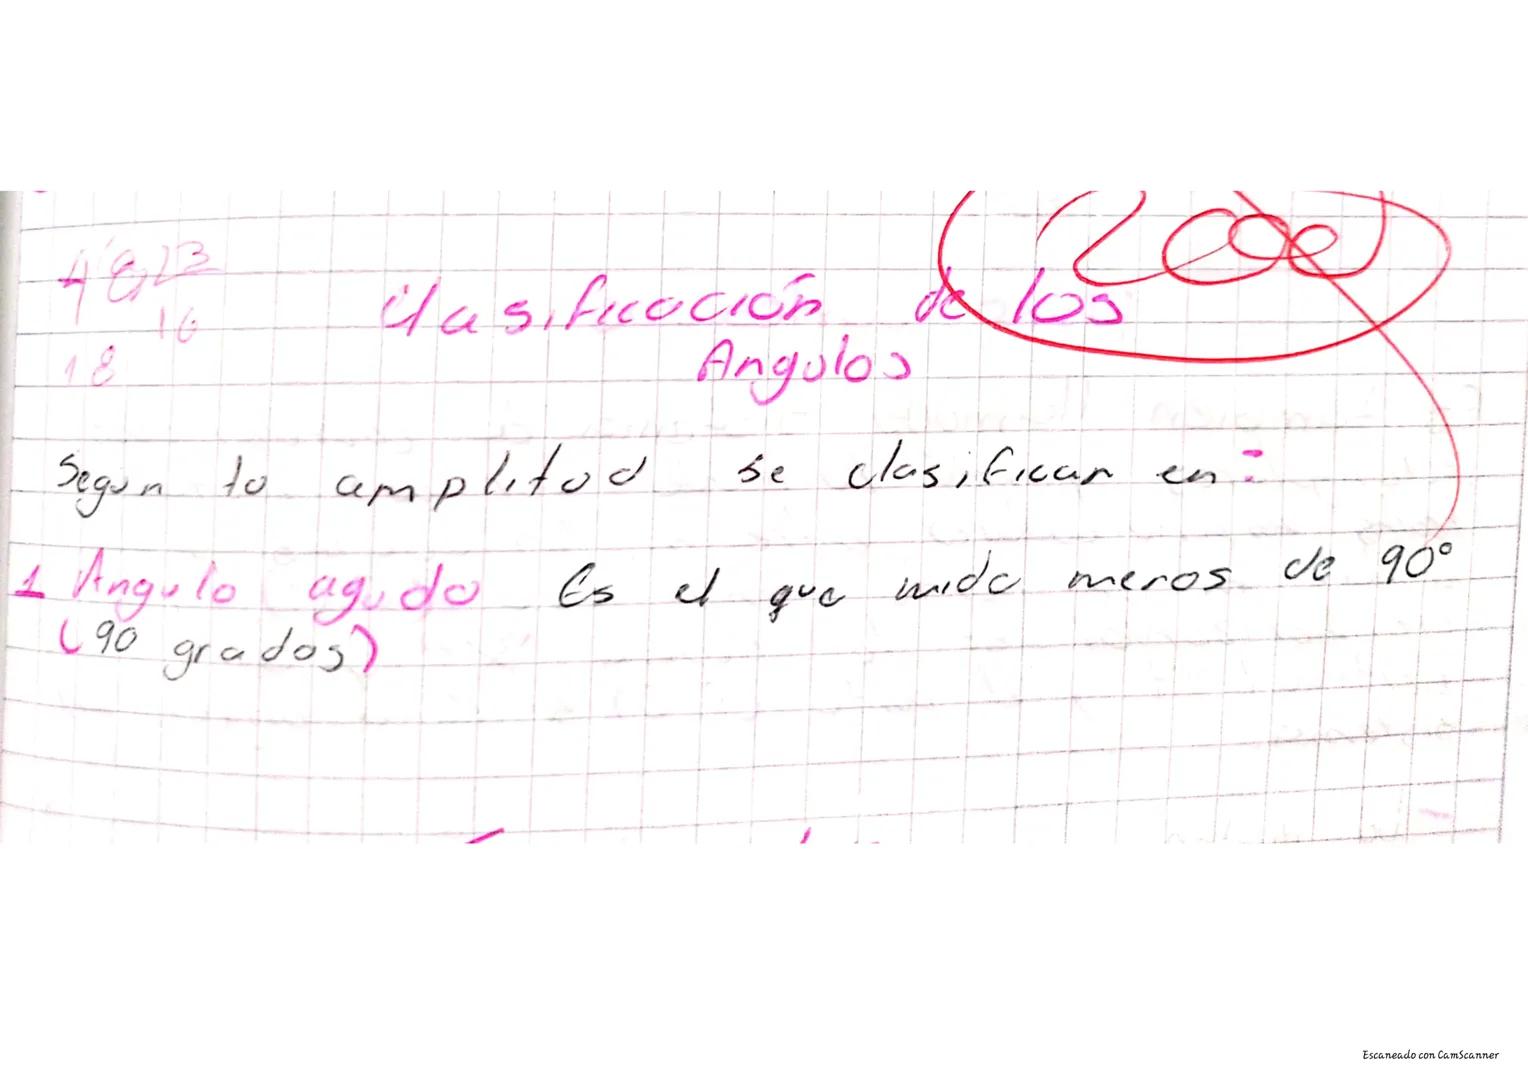 Clasificación de los
Angulos
Segun to amplitud se clasifican en:
1 Angulo agudo Es el que mide menos de 90°
(90 grados)
16
18
Escaneado con CamScanner